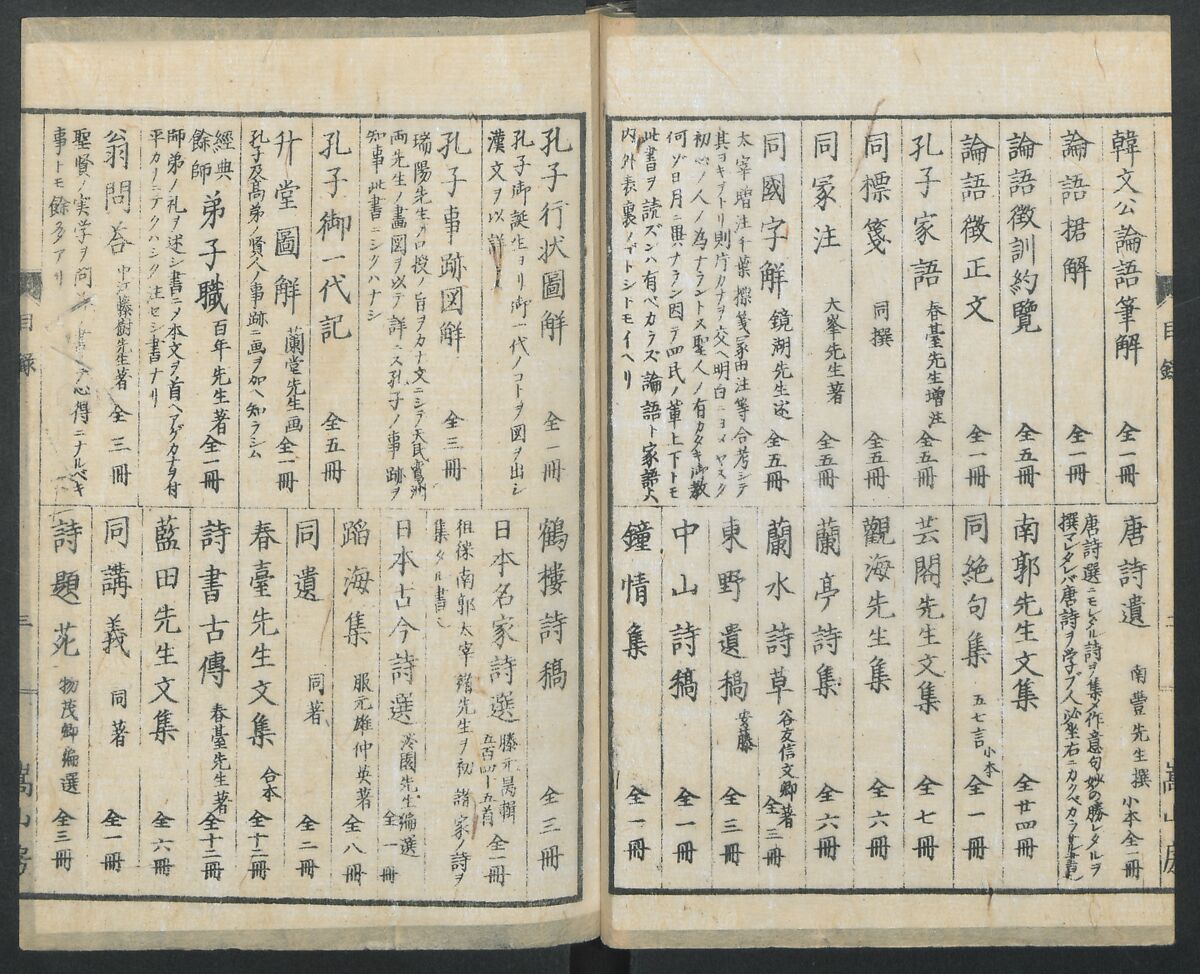 目録
嵩山房
韓文公論語筆解 全一冊
論語𢫫解 全一冊
論語徴訓約覽 全五冊
論語徴正文 全一冊
孔子家語 春䑓先生増注 全五冊
同標箋 同撰 全五冊
同冢注 大峯先生著 全五冊
同國字解 鏡湖先生述 全五冊
太宰増注千葉標箋冢田注等合考シテ
其ヨキヲトリ則片カナヲ交ヘ明白ニヨメヤスク
初心ノ人ノ為ナラントス聖人ノ有カタキ御教
何ソ日月ニ異ハナラン因テ四民ノ軰上下トモ
此書ヲ読ズンハ有ベカラズ論語ト家語ハ
内外表裏ノゴトシトモイヘリ
唐詩遺 南豐先生撰 小本全一冊
唐詩選ニモレタル詩ヲ集メ作意句妙ノ勝レタルヲ
撰マレタレバ唐詩ヲ学ブ人必坐右ニカクベカラサル書也
南郭先生文集 全廿四冊
同絶句集 五七言小本 全一冊
芸閣先生文集 全七冊
觀海先生集 全六冊
蘭亭詩集 全六冊
蘭水詩草 谷友信文卿著 全三冊
東野遺稿 安藤 全三冊
中山詩稿 全一冊
鐘情集 全一冊
孔子行状圖解 全一冊
孔子御誕生ヨリ御一代ノコトヲ図ヲ出シ
漢文ヲ以詳ニス
孔子事跡図解 全三冊
瑞陽先生ノ口授ノ旨ヲカナ文ニシテ天民鸞洲
両先生ノ畵図ヲ以テ詳ニス孔子ノ事跡ヲ
知事此書ニシクハナシ
孔子御一代記 全五冊
升堂圖解 蘭堂先生画 全一冊
孔子及髙弟ノ賢人ノ事跡ニ画ヲ加ヘ知ラシム
經典餘師 弟子職 百年先生著 全一冊
師弟ノ礼ヲ述シ書ニヲ本文ヲ首ヘアゲカナヲ付
平カリニテクハシク注セシ書ナリ
翁問答 中江藤樹先生著 全三冊
聖賢ノ実学ヲ問 心得ニナルベキ
事トモ餘多アリ
鶴樓詩稿 全三冊
日本名家詩選 滕元昺輯 五百四十五首 全一冊
徂徠南郭太宰 先生ヲ初諸家ノ詩ヲ
集タル書也
日本古今詩選 先生編選 全一冊
蹈海集 服元雄仲英著 全八冊
同遺 同著 全二冊
春臺先生文集 合本 全十二冊
詩書古傳 春臺先生著 全十二冊
藍田先生文集 全六冊
同講義 同著 全一冊
詩題苑 物茂卿編選 全三冊
目録
三
嵩山房